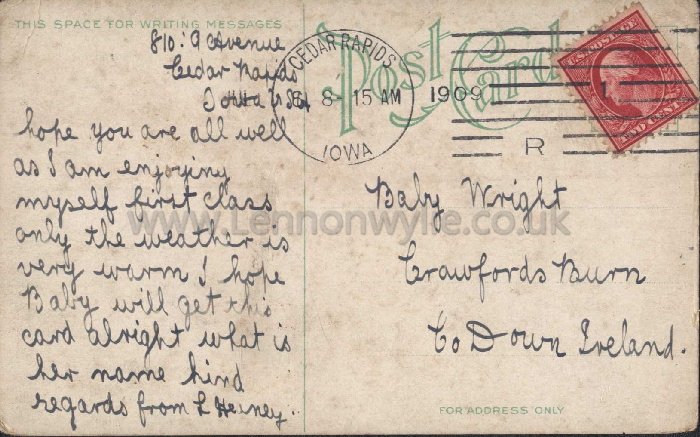 THIS SPACE FOR WRITING MESSAGES
Post Card
810: 9 Avenue
Cedar Rapids
Iowa USA
hope you are all well
as I am enjoying
myself first class
only the weather is
very warm I hope
Baby will get this
card alright what is
her name kind
regards from L Heiney.
CEDAR RAPIDS
8- 15 AM
1909
IOWA
1
R
Baby Wright
Crawfords Burn
Co Down Ireland.
FOR ADDRESS ONLY
www.Lennonwylie.co.uk